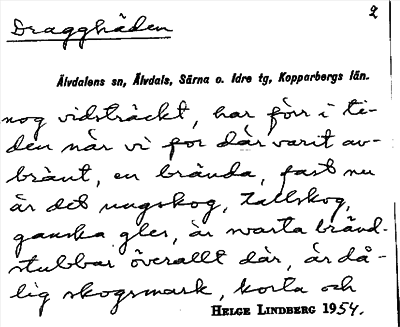 2
Draggheden
Älvdalens sn, Älvdals, Särna o. Idre tg, Kopparbergs län.
nog vidsträckt, har förr i ti-
den när vi for där varit av-
bränt, en brända, fast nu
är det ungskog, tallskog,
ganska gles, är svarta bränd-
stubbar överallt där, är då-
lig skogsmark, korta och
HELGE LINDBERG 1954.